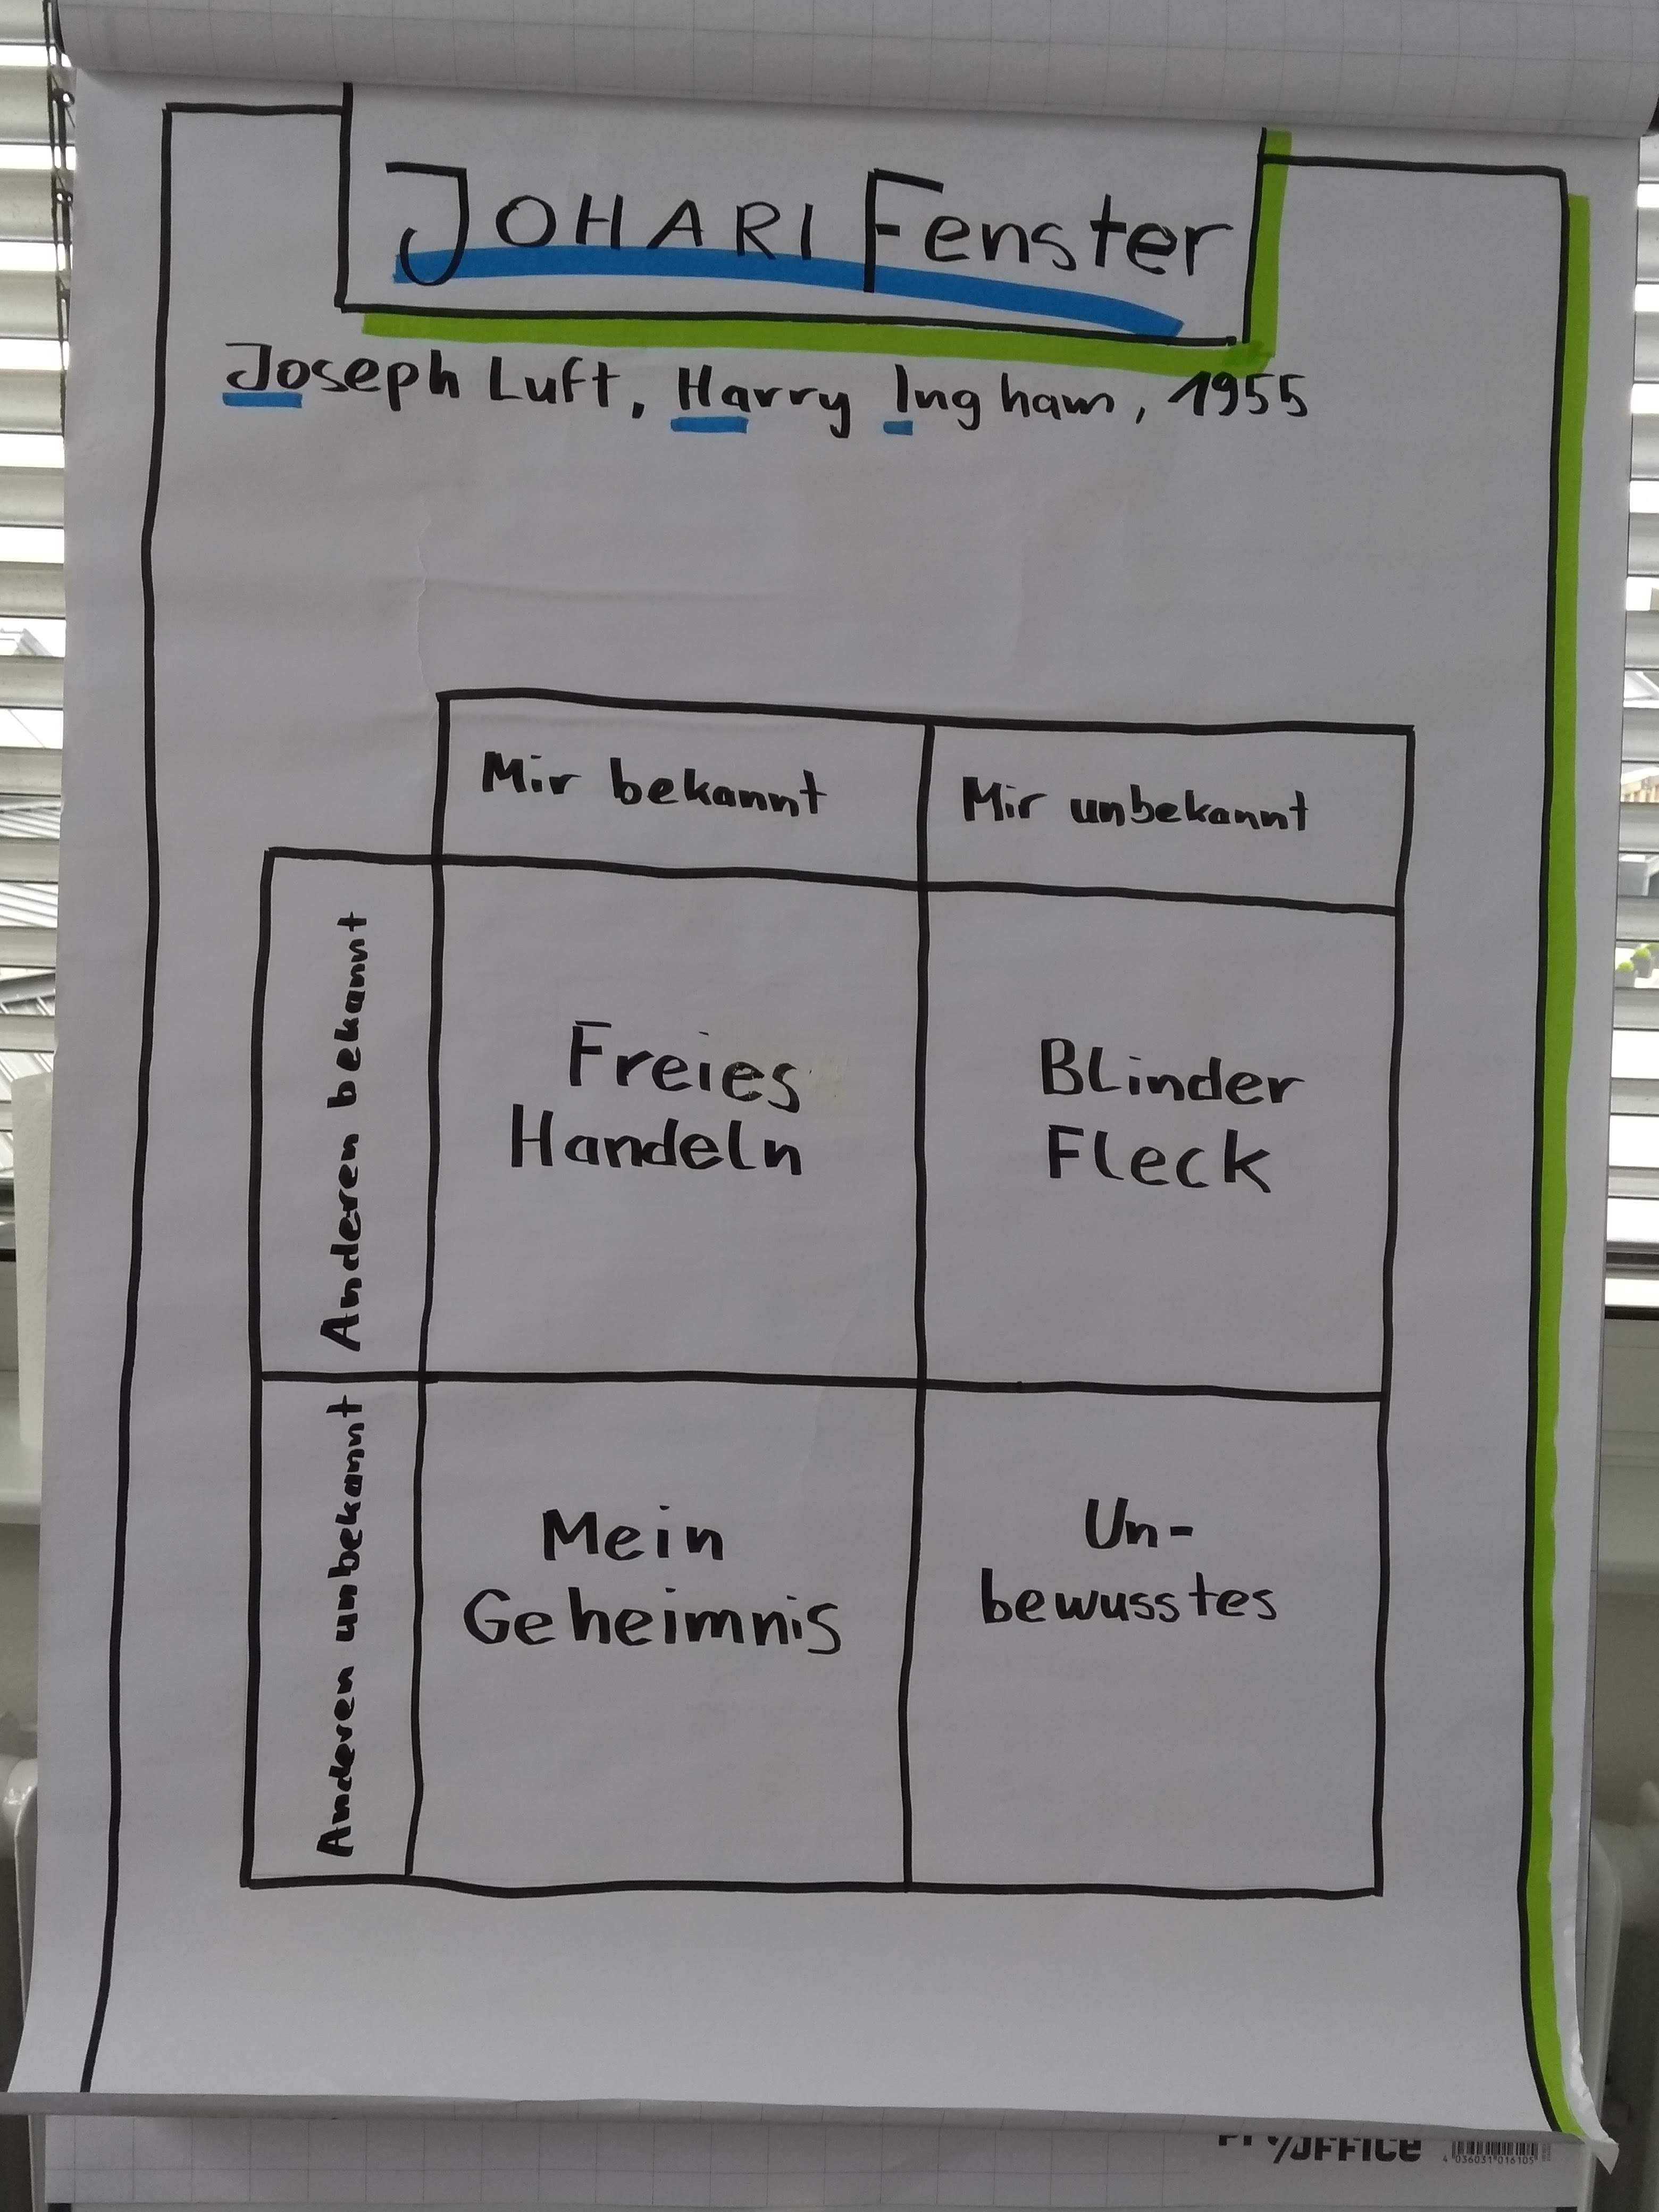 JOHARI Fenster
Joseph Luft, Harry Ingham, 1955
Mir bekannt
Mir unbekannt
Anderen bekannt
Freies
Handeln
Blinder
Fleck
Anderen unbekannt
Mein
Geheimnis
Un-
bewusstes
4 036031 016105